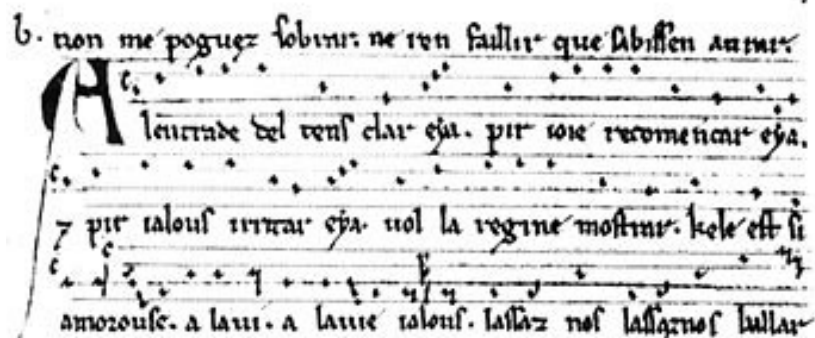 non me poguez sobrar. ne ren faillir que sabissen
A lentrade del tens clar eya. pir ioie recomencar eya.
⁊ pir ialous irritar eya. uol la regine mostrar. kele est si
amorouse. a laui. a lauie ialous. lassaz nos lassaz nos ballar